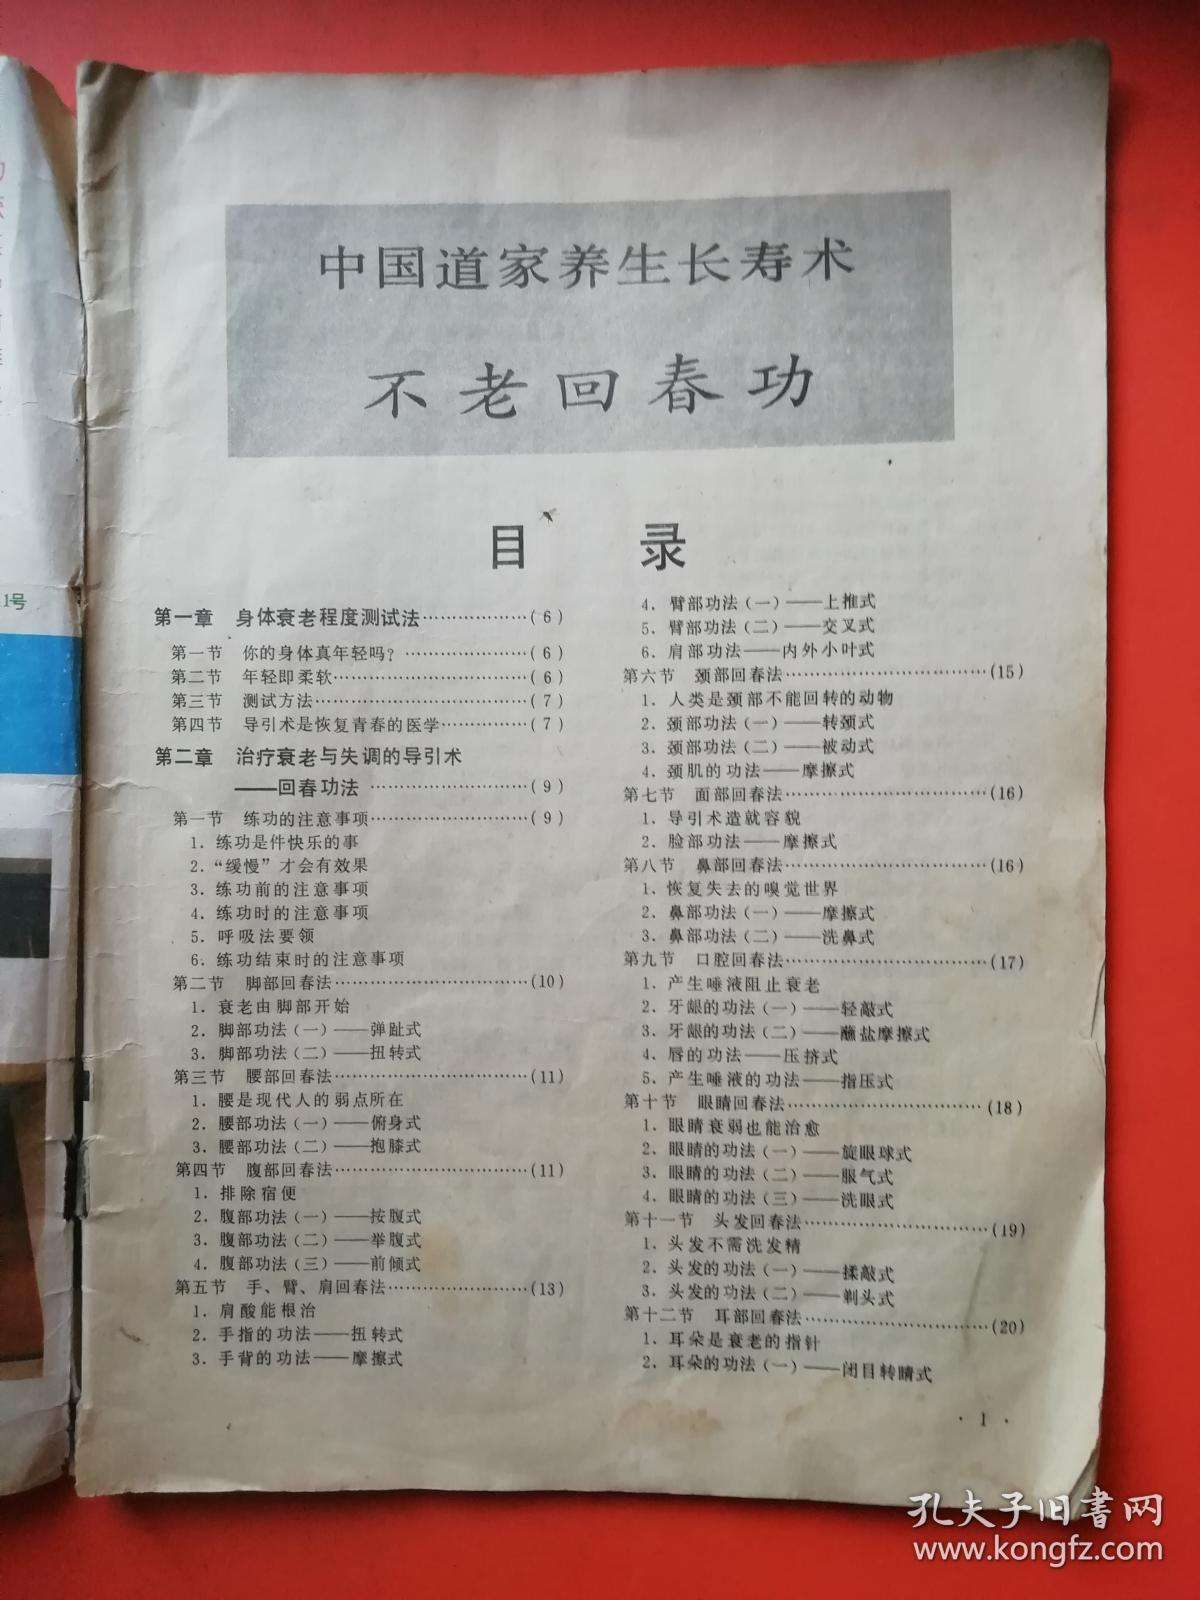 1号
中国道家养生长寿术
不老回春功
目 录
第一章 身体衰老程度测试法………………(6)
第一节 你的身体真年轻吗? …………………(6)
第二节 年轻即柔软……………………………(6)
第三节 测试方法………………………………(7)
第四节 导引术是恢复青春的医学……………(7)
第二章 治疗衰老与失调的导引术
——回春功法 ………………………(9)
第一节 练功的注意事项………………………(9)
1．练功是件快乐的事
2．“缓慢”才会有效果
3．练功前的注意事项
4．练功时的注意事项
5．呼吸法要领
6．练功结束时的注意事项
第二节 脚部回春法……………………………(10)
1．衰老由脚部开始
2．脚部功法(一)——弹趾式
3．脚部功法(二)——扭转式
第三节 腰部回春法……………………………(11)
1．腰是现代人的弱点所在
2．腰部功法(一)——俯身式
3．腰部功法(二)——抱膝式
第四节 腹部回春法……………………………(11)
1．排除宿便
2．腹部功法(一)——按腹式
3．腹部功法(二)——举腹式
4．腹部功法(三)——前倾式
第五节 手、臂、肩回春法……………………(13)
1．肩酸能根治
2．手指的功法——扭转式
3．手背的功法——摩擦式
4．臂部功法(一)——上推式
5．臂部功法(二)——交叉式
6．肩部功法——内外小叶式
第六节 颈部回春法……………………………(15)
1．人类是颈部不能回转的动物
2．颈部功法(一)——转颈式
3．颈部功法(二)——被动式
4．颈肌的功法——摩擦式
第七节 面部回春法……………………………(16)
1．导引术造就容貌
2．脸部功法——摩擦式
第八节 鼻部回春法……………………………(16)
1．恢复失去的嗅觉世界
2．鼻部功法(一)——摩擦式
3．鼻部功法(二)——洗鼻式
第九节 口腔回春法……………………………(17)
1．产生唾液阻止衰老
2．牙龈的功法(一)——轻敲式
3．牙龈的功法(二)——蘸盐摩擦式
4．唇的功法——压挤式
5．产生唾液的功法——指压式
第十节 眼睛回春法……………………………(18)
1．眼睛衰弱也能治愈
2．眼睛的功法(一)——旋眼球式
3．眼睛的功法(二)——服气式
4．眼睛的功法(三)——洗眼式
第十一节 头发回春法…………………………(19)
1．头发不需洗发精
2．头发的功法(一)——揉敲式
3．头发的功法(二)——剃头式
第十二节 耳部回春法…………………………(20)
1．耳朵是衰老的指针
2．耳朵的功法(一)——闭目转睛式
· 1 ·
孔夫子旧书网
www.kongfz.com